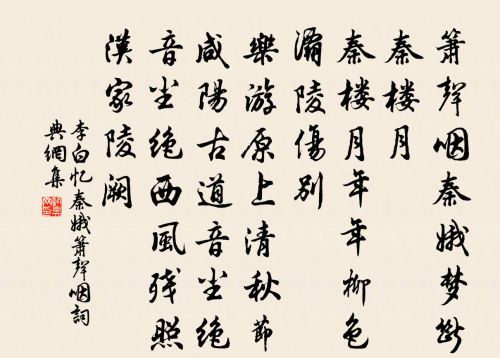 箫聲咽秦娥梦断
秦楼月
秦楼月年年柳色
灞陵傷别
樂游原上清秋節
咸陽古道音尘绝
音尘绝西風残照
漢家陵阙
李白忆秦娥箫聲咽詞
典網集